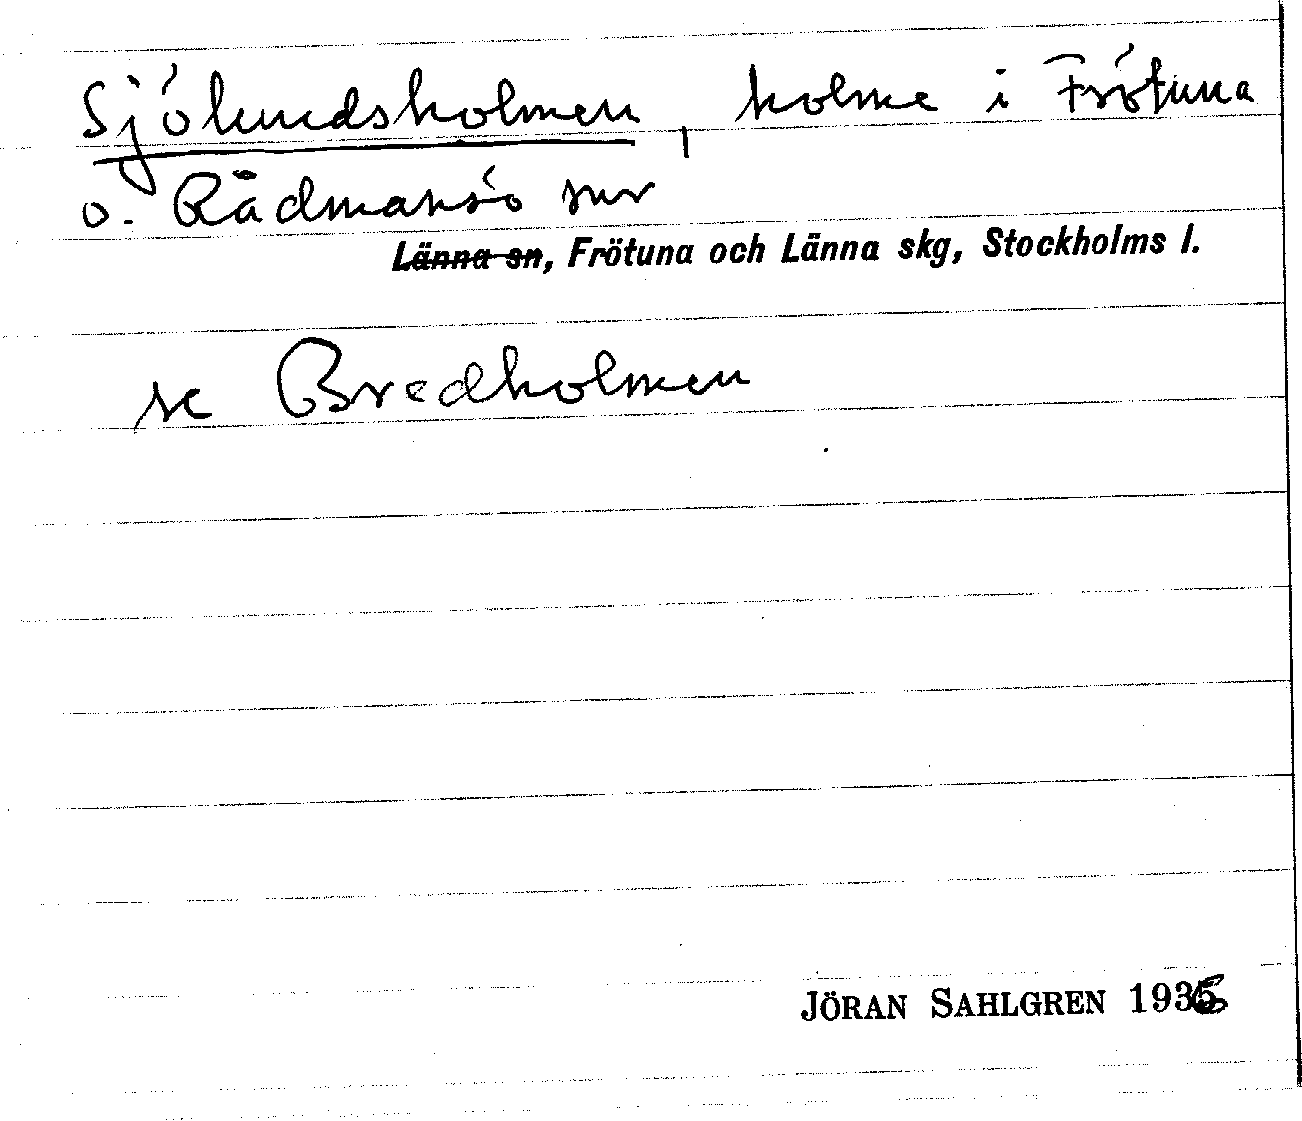 Sjölundsholmen, holme i Frötuna
o. Rådmansö snr
Länna sn, Frötuna och Länna skg, Stockholms l.
se Bredholmen
JÖRAN SAHLGREN 1936